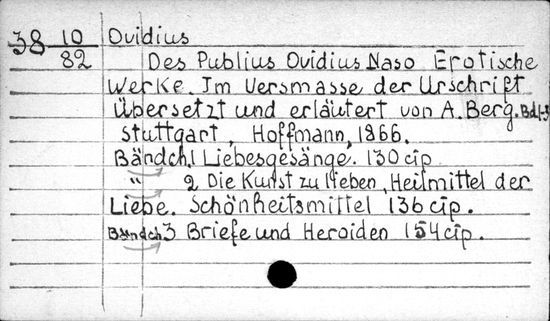 38 10/82 Ovidius
Des Publius Ovidius Naso Erotische
Werke. Im Versmasse der Urschrift
Übersetzt und erläutert von A. Berg. Bd 1-3
Stuttgart, Hoffmann, 1866.
Bändch. 1 Liebesgesänge. 130 стр.
" 2 Die Kunst zu lieben, Heilmittel der
Liebe. Schönheitsmittel 136 стр.
Bändch 3 Briefe und Heroiden 154 стр.